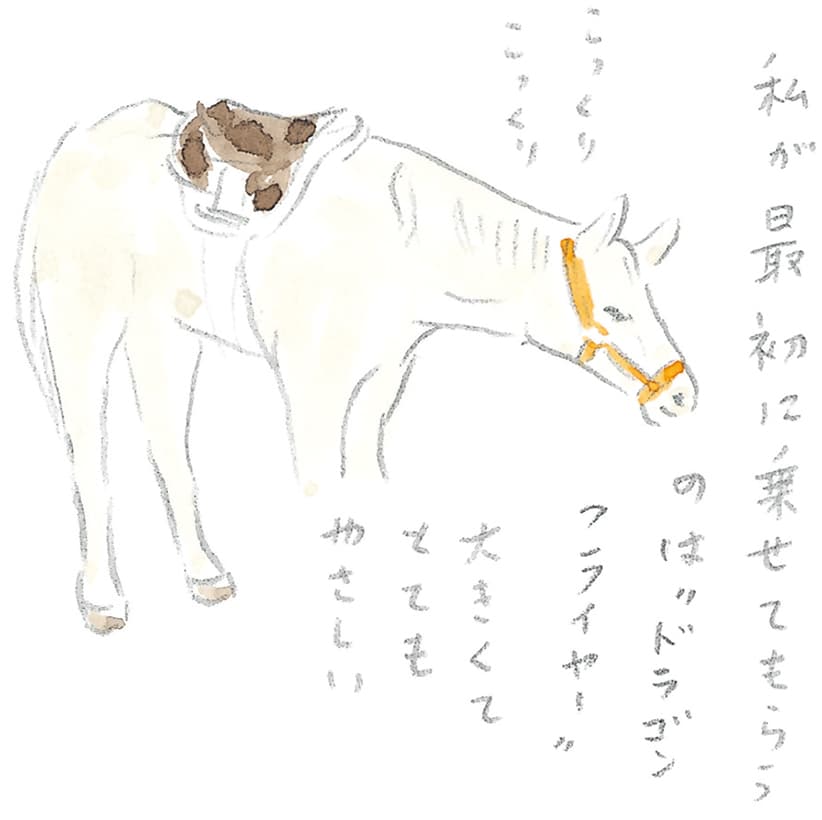 私が最初に乗せてもらう
のは〃ドラゴン
フライヤー〃
大きくて
とても
やさしい
こっくり
こっくり